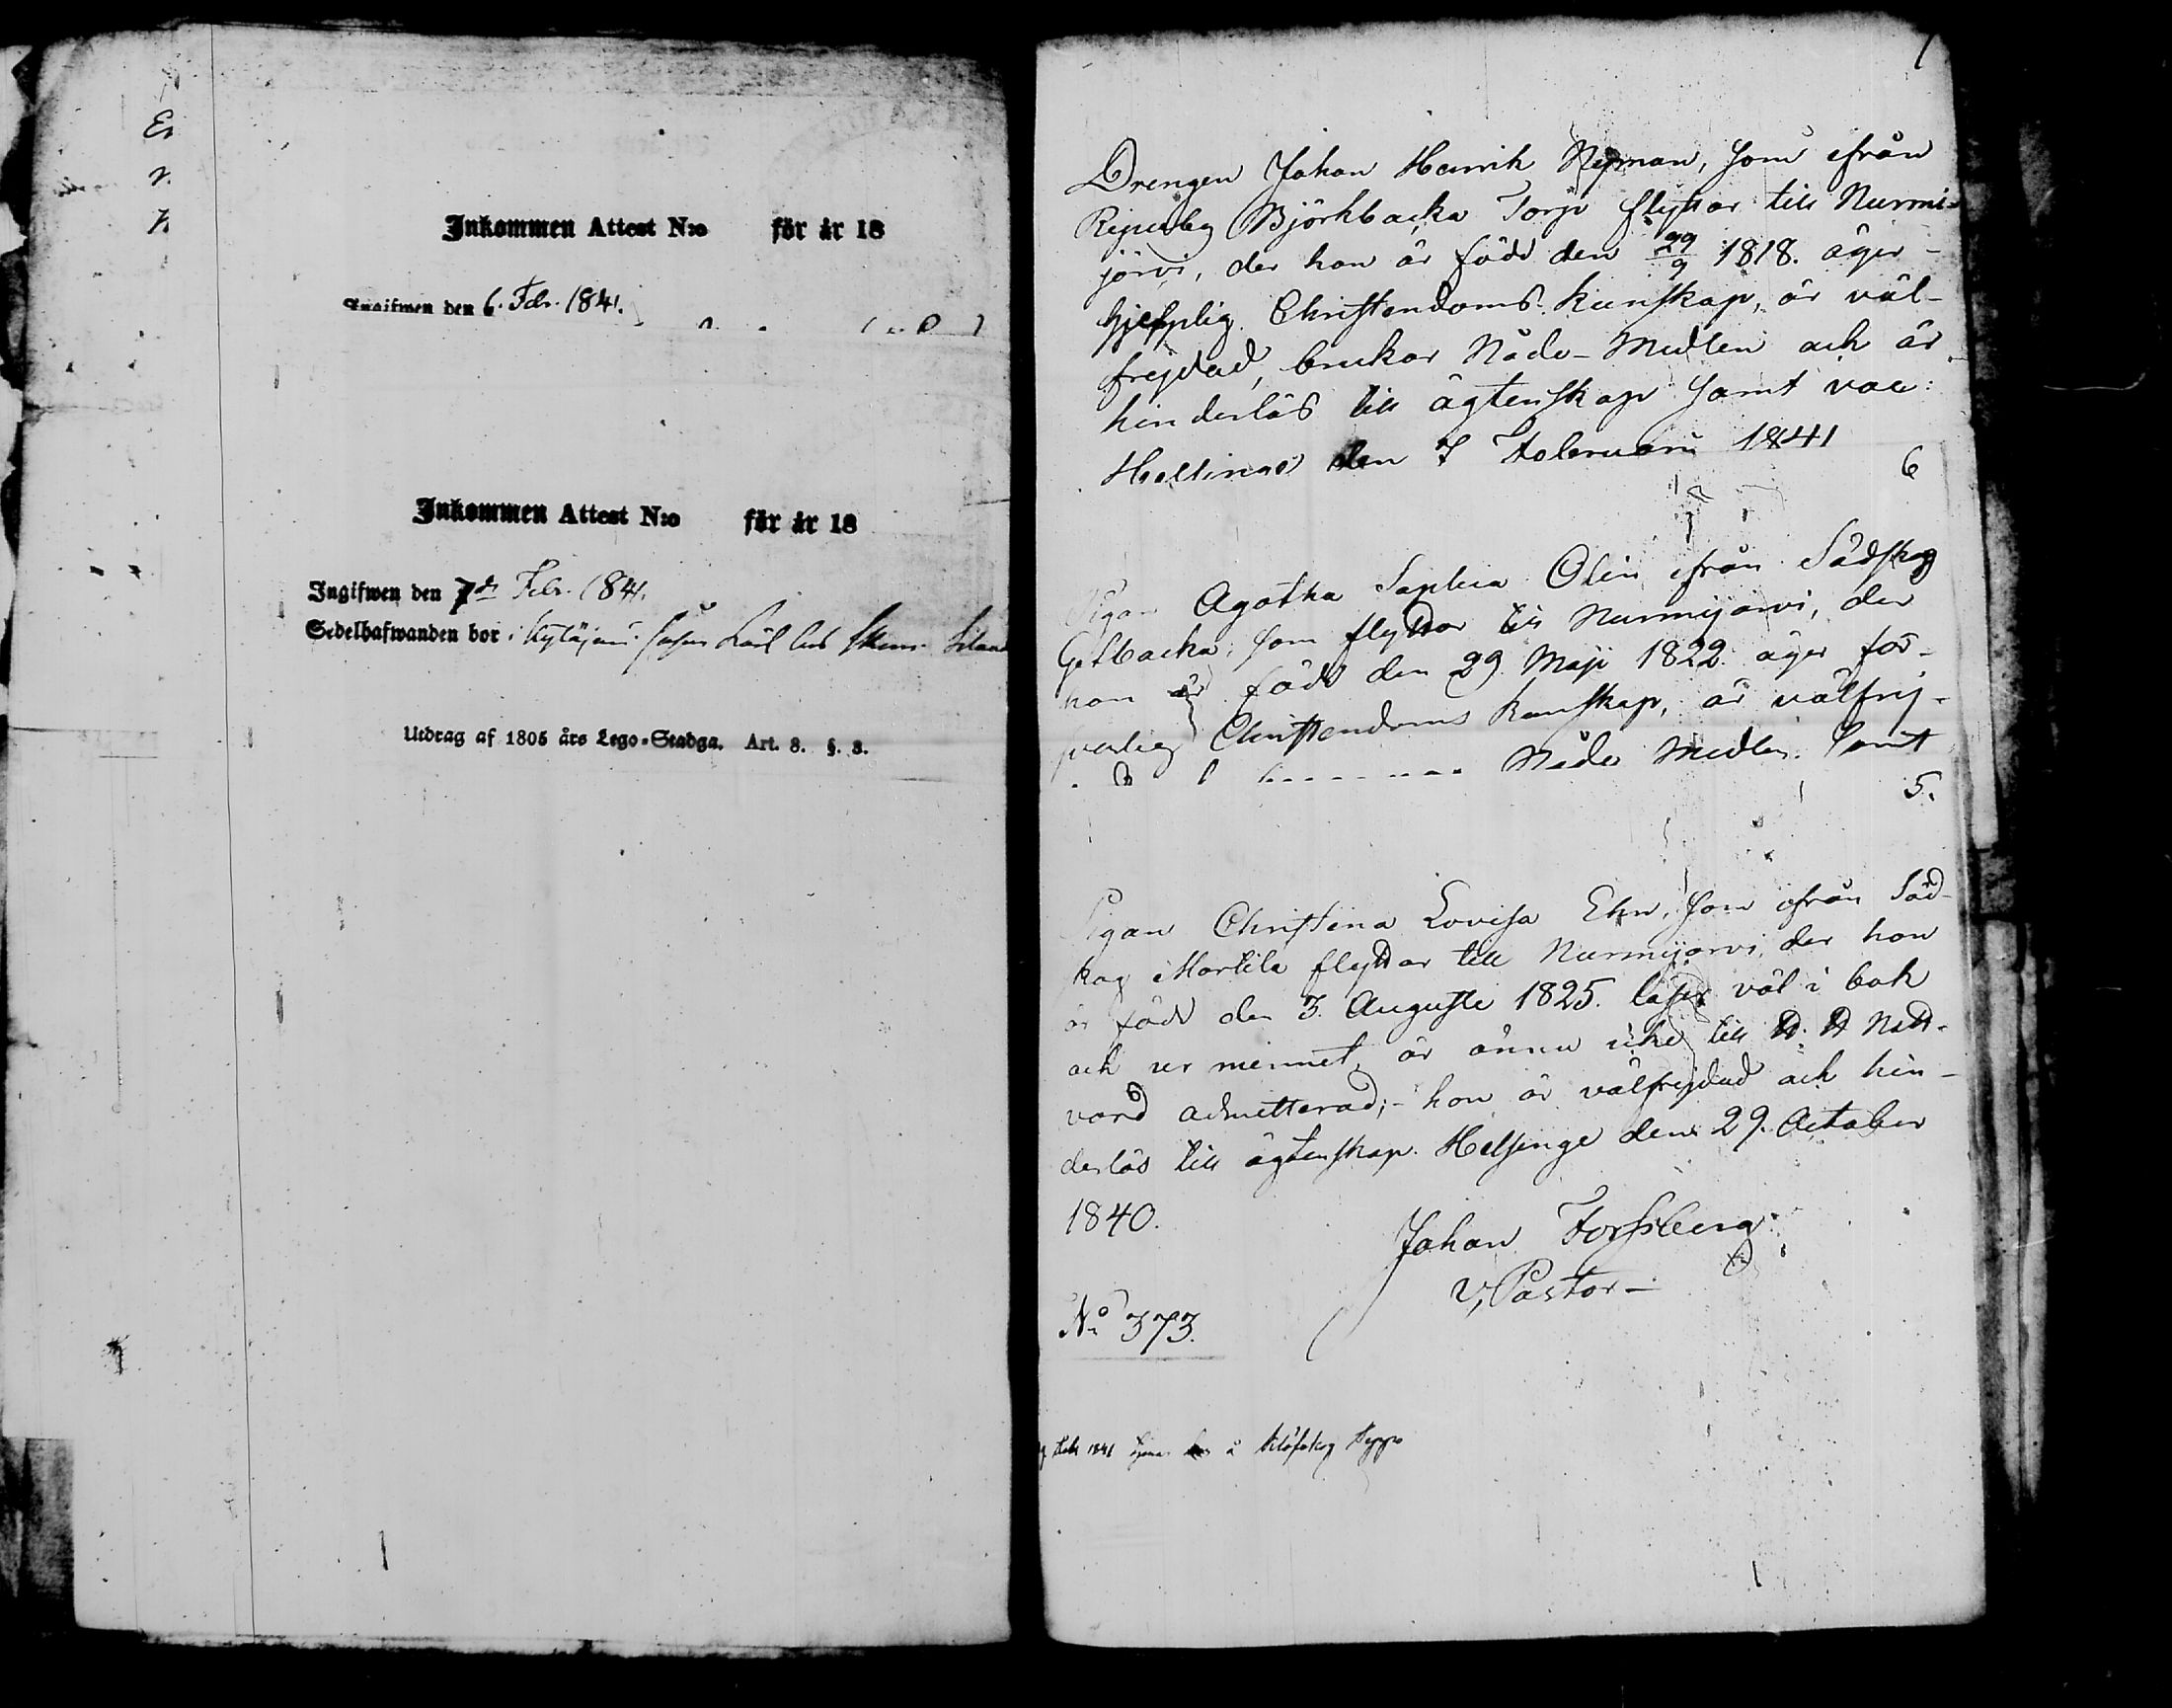 Inkommen Attest N:o för år 18
Ingifwen den 6. Febr. 1841.
Inkommen Attest N:o för år 18
Ingifwen den 7de Febr. 1841.
Sedelhafwanden bor i
Utdrag af 1805 års Lego-Stadga. Art. 8. §. 8.
1
Drengen Johan Henrik Nyman, som ifrån
Björkbacka Torp flyttar till Nurmi-
järvi, der han är född den 29/9 1818. äger
hjelplig Christendoms kunskap, är väl-
frejdad, brukar Nåde-Medlen och är
hinderlös till ägtenskap samt vac:
Helsinge den 7 Februarii 1841
6
Pigan Agatha Sophia Olin ifrån Sådskog
Getbacka, som flyttar till Nurmijärvi, der
hon är född den 29 Maji 1822. äger för-
svarlig Christendoms kunskap, är välfrej-
Nåde Medlen. samt
5.
Pigan Christina Lovisa Ehn, som ifrån Såd-
skog Martila flyttar till Nurmijärvi, der hon
är född den 3. Augusti 1825. läser väl i bok
och ur minnet, är ännu icke till H. H. Natt-
vard admitterad;- hon är välfrejdad och hin-
derlös till ägtenskap. Helsinge den 29. October
1840.
Johan Forssberg
V. Pastor
No 373.
Febr 1841 tjenar å